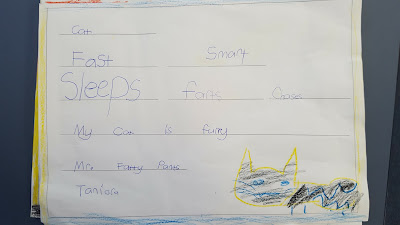 Cat
Fast Smart
Sleeps farts Chases
My Cat is furry
Mr. Farty Pants